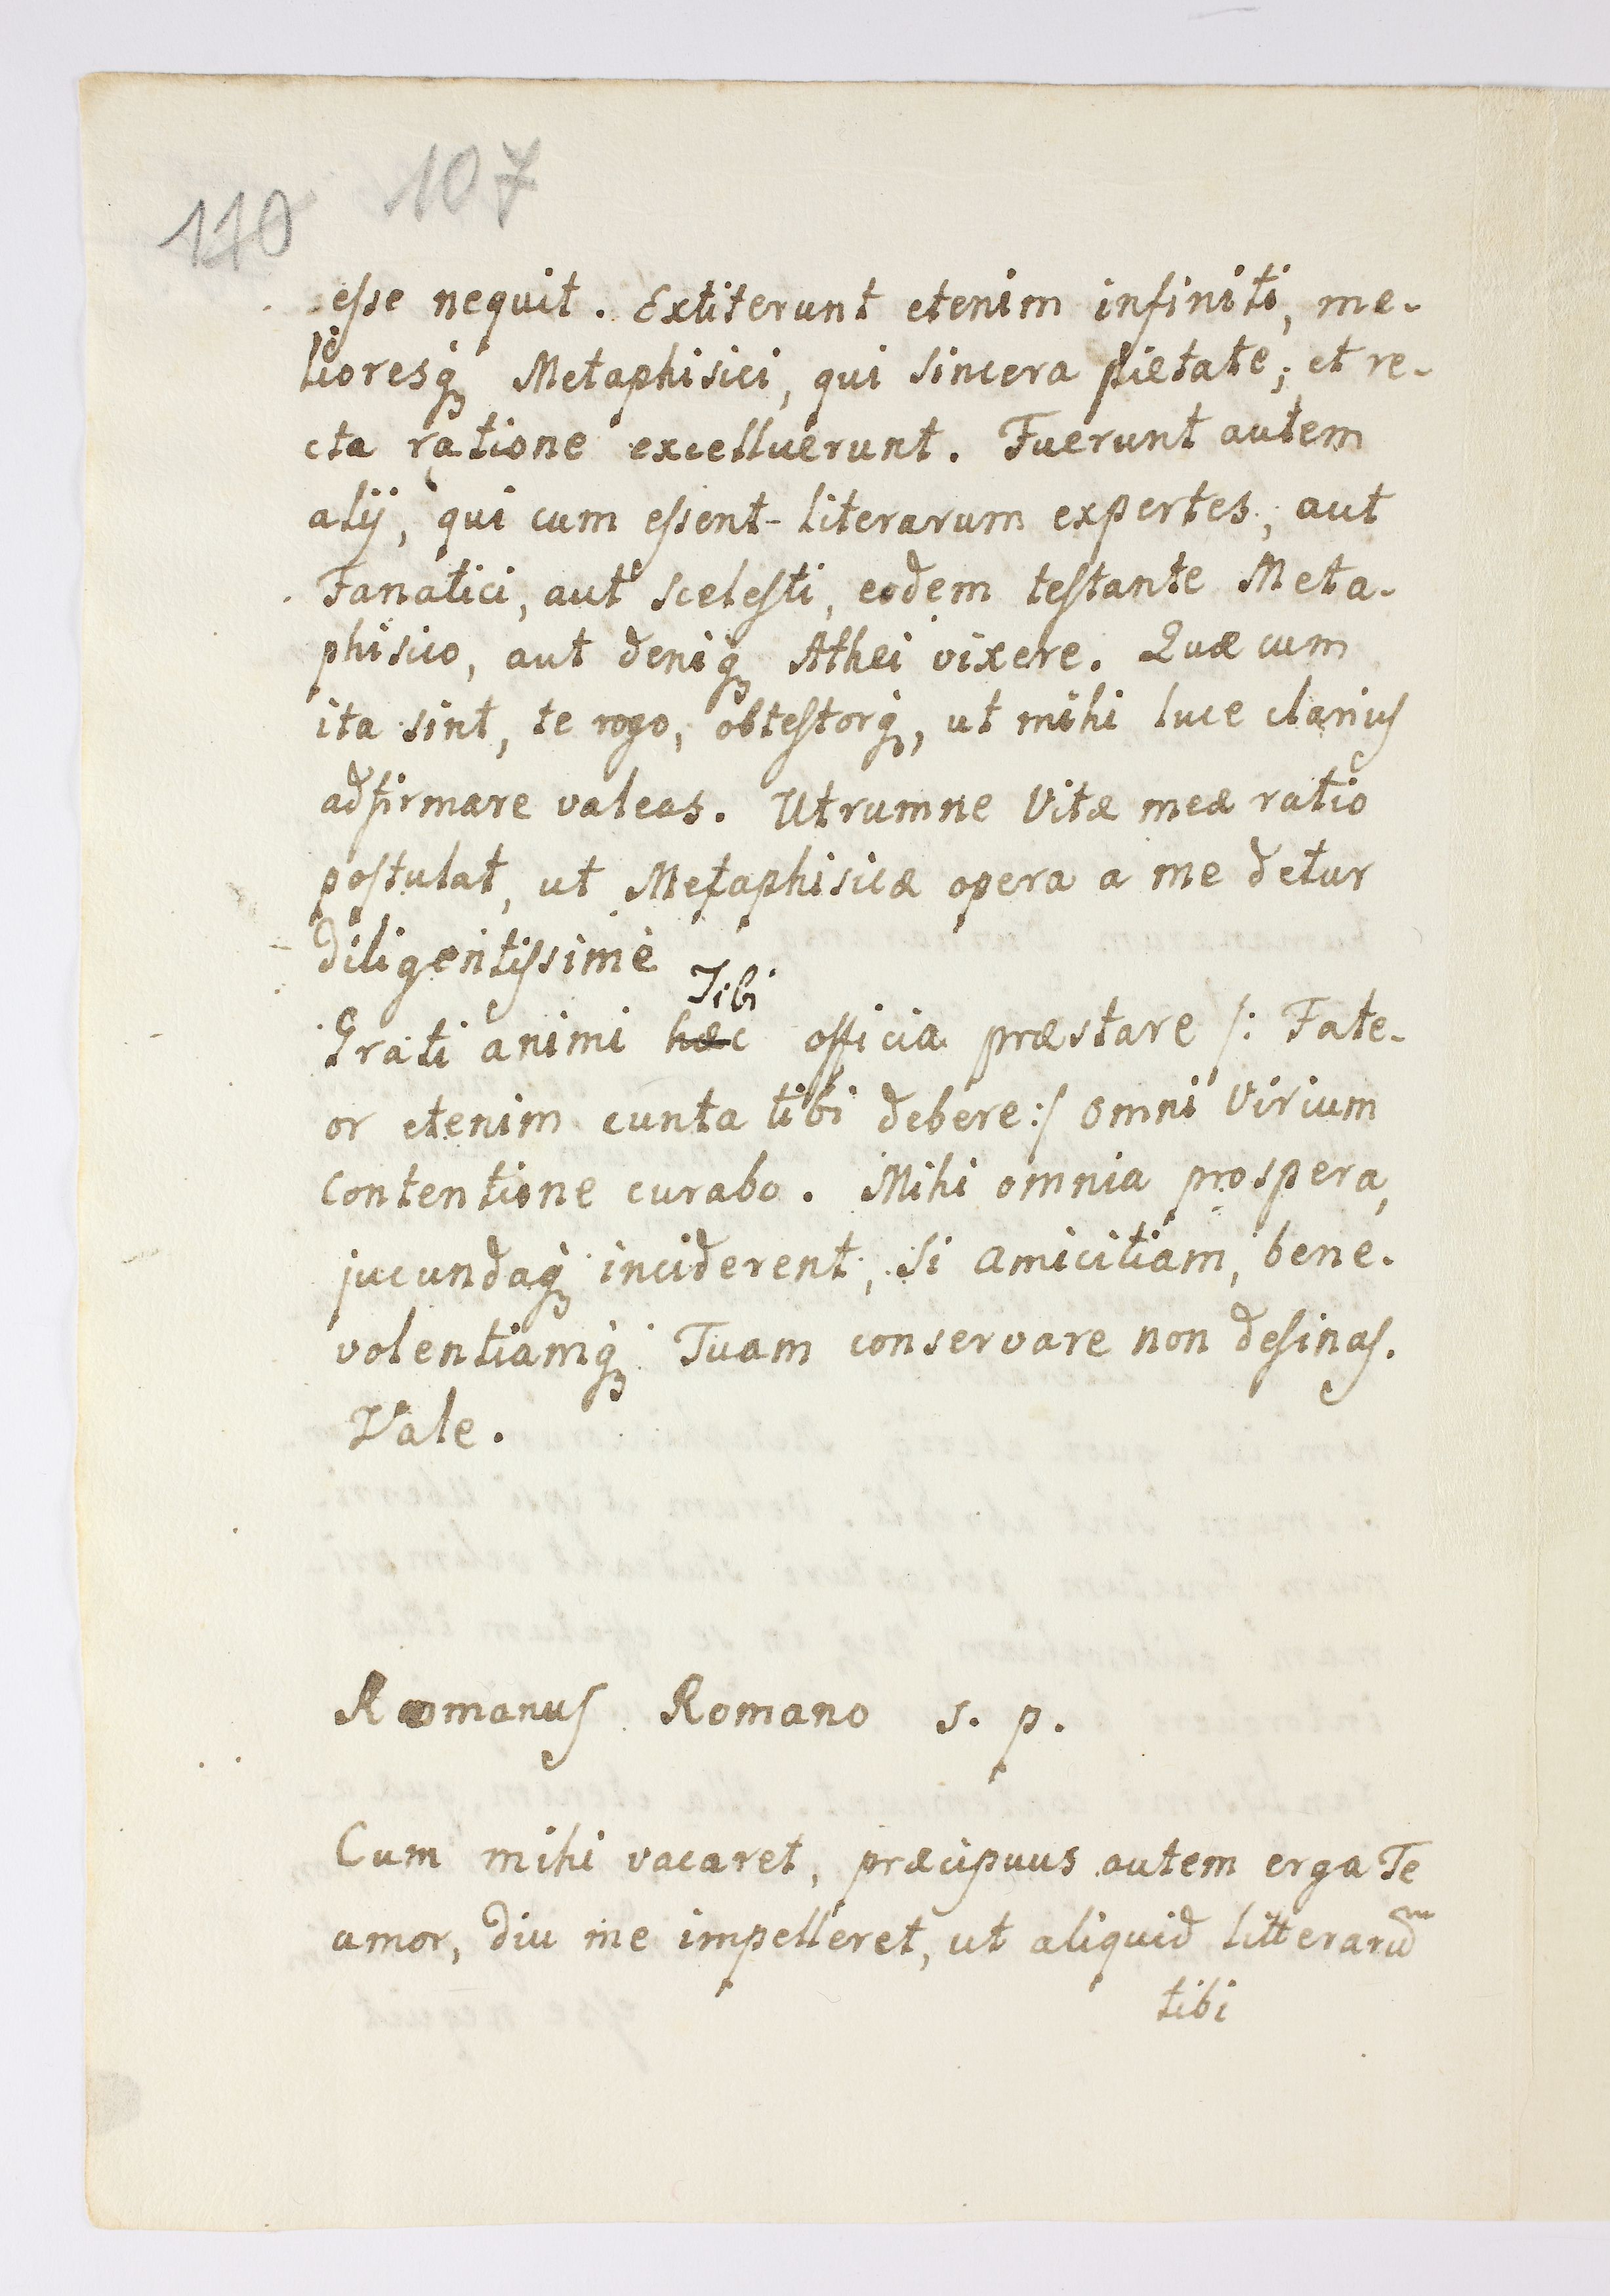 107
110
esse nequit. Extiterunt etenim infiniti, me-
lioresq́ꝫ Metaphisici, qui sincera pietate, et re-
cta ratione excelluerunt. Fuerunt autem
alij, qui cum essent literarum expertes, aut
Fanatici, aut scelesti, eodem testante Meta-
phisico, aut deniq́ꝫ Athei vixere. Quæ cum
ita sint, te rogo, obtestorq́ꝫ, ut mihi luce clarius
adfirmare valeas. Utrumne Vitæ meæ ratio
postulat, ut Metaphisicæ opera a me detur
diligentissimè
Tibi
Grati animi hæc officia præstare /: Fate-
or etenim cunta tibi debere :/ omni Virium
contentione curabo. Mihi omnia prospera,
jucundaq́ꝫ inciderent, si amicitiam, bene-
volentiamq́ꝫ Tuam conservare non desinas.
Vale.
Romanus Romano s. p.
Cum mihi vacaret, præcipuus autem erga Te
amor, diu me impelleret, ut aliquid litterarũ
tibi